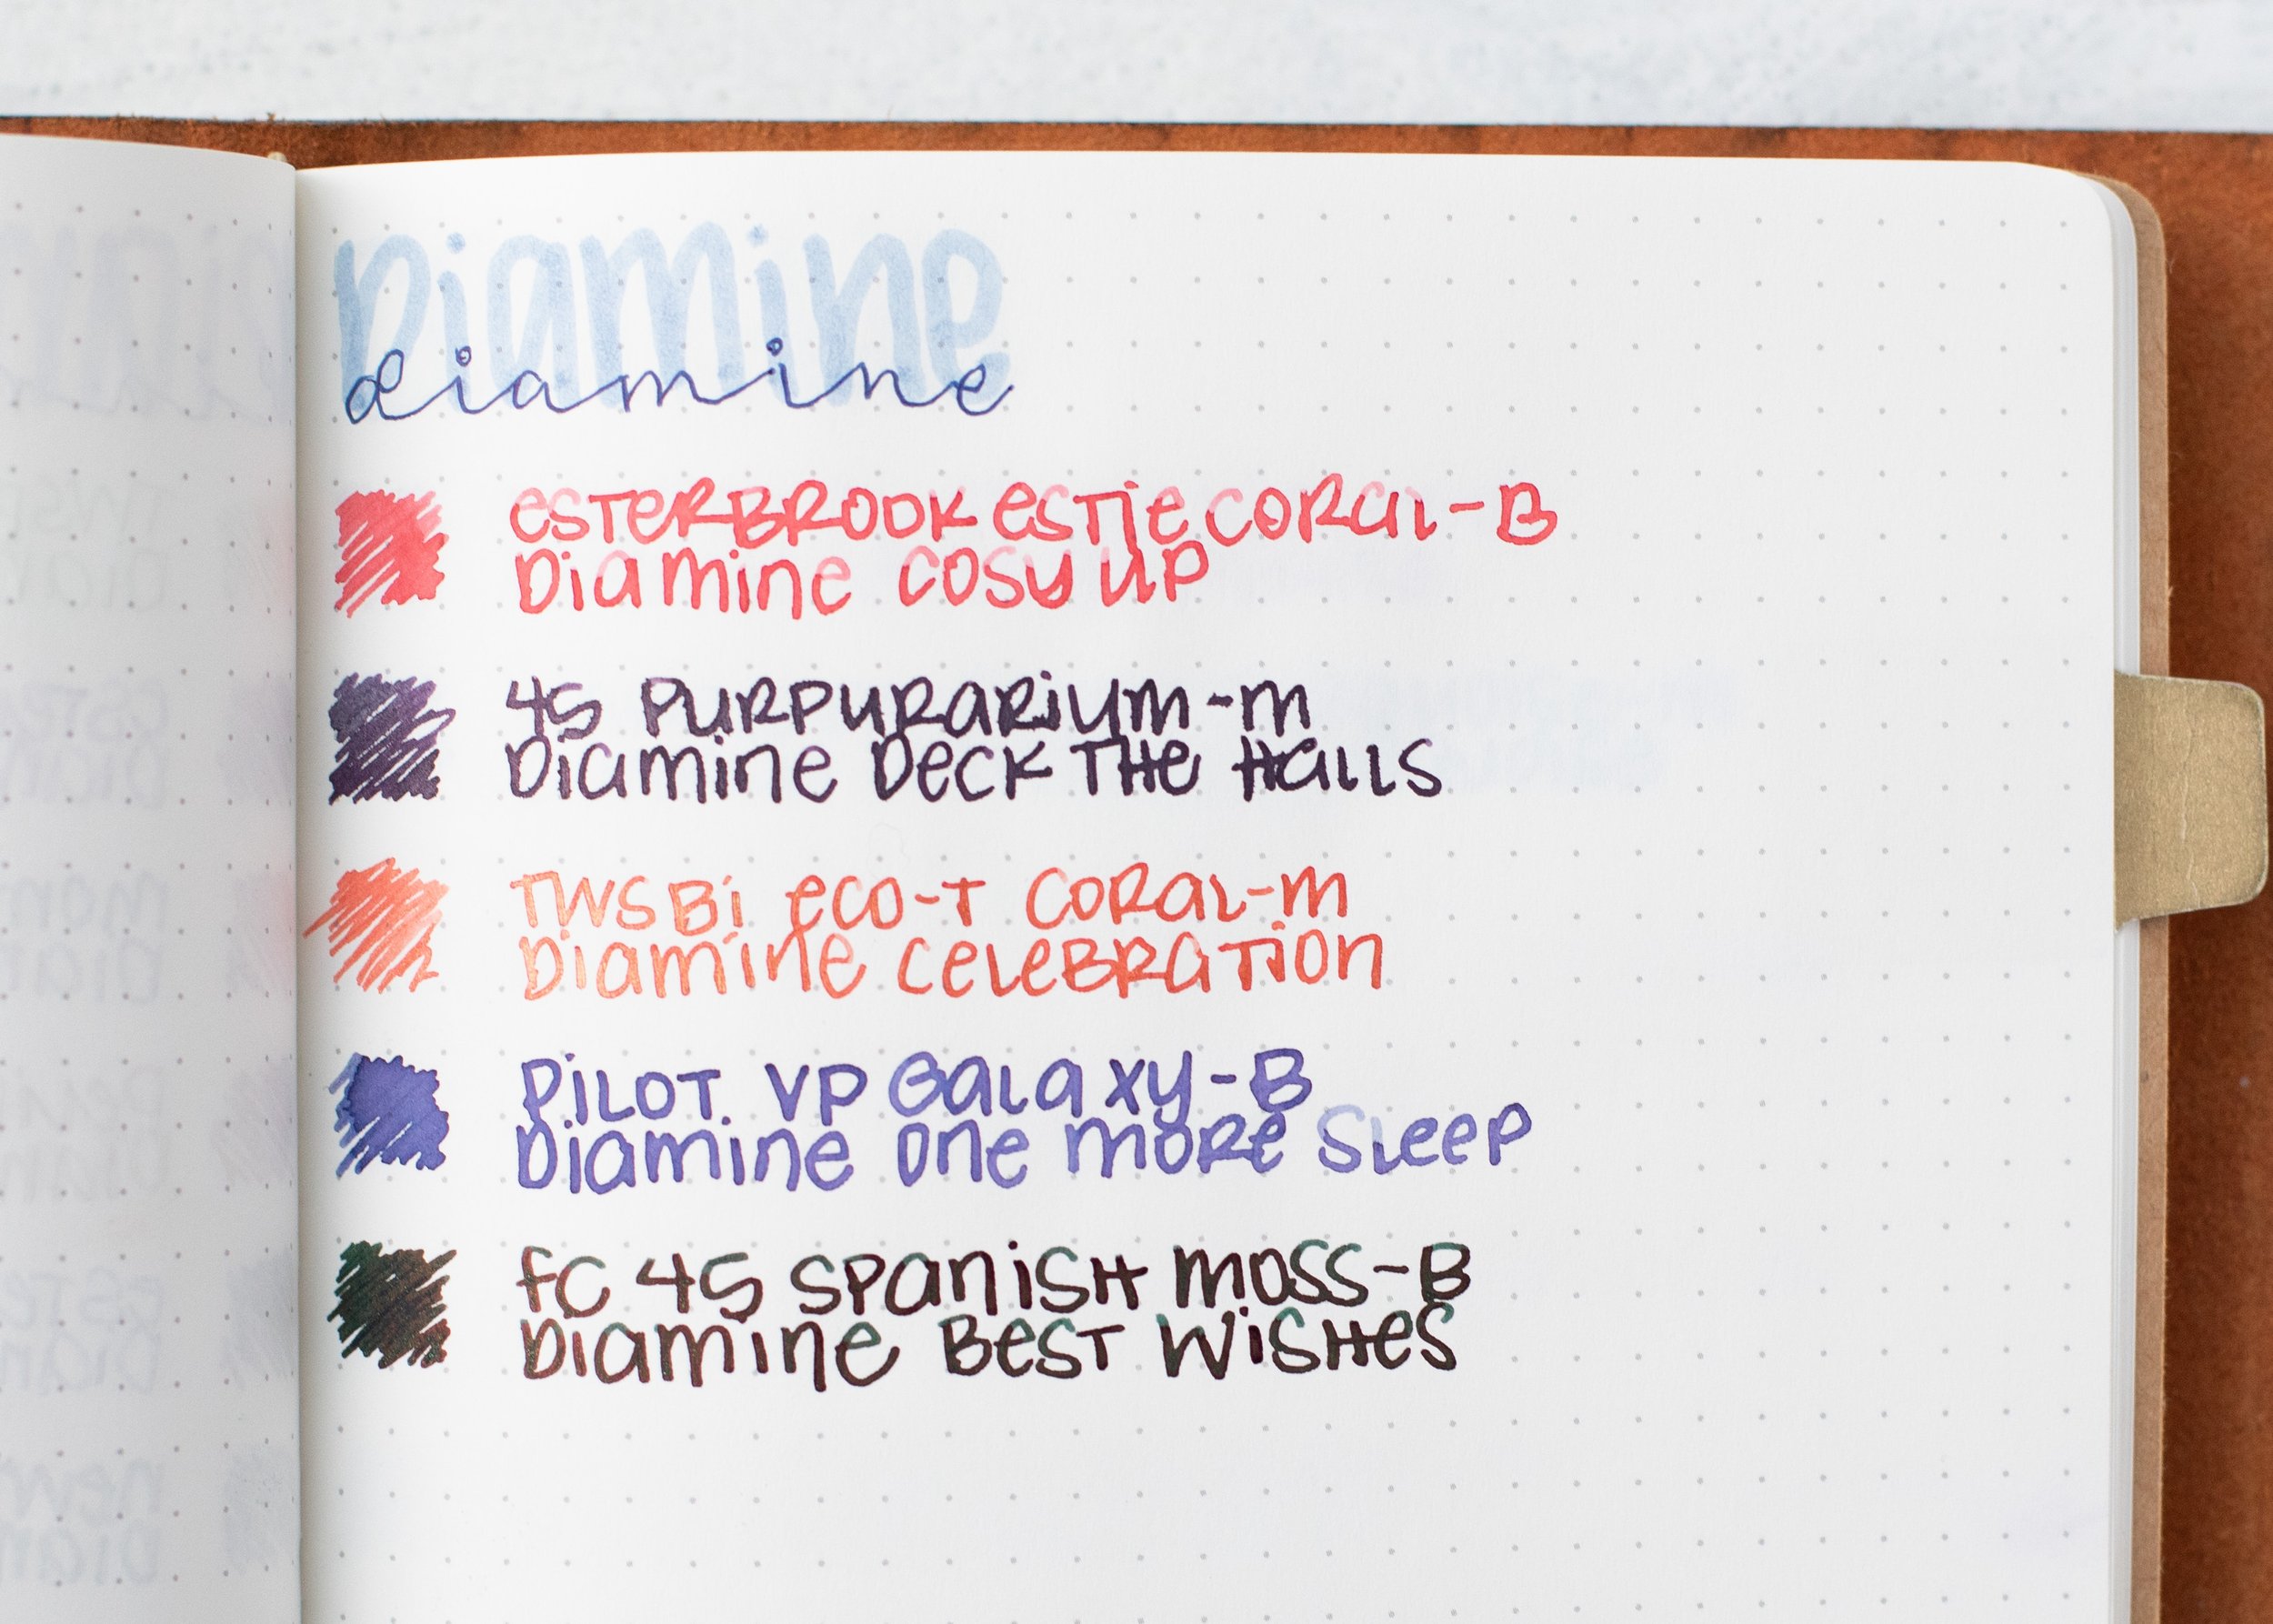 Diamine
diamine
esterbrook estie coral - B
Diamine cosy up
45 Purpurarium - m
Diamine Deck the Halls
TWSBi eco-T coral - m
Diamine celebration
Pilot VP Galaxy - B
Diamine one more sleep
FC 45 Spanish moss - B
Diamine Best Wishes